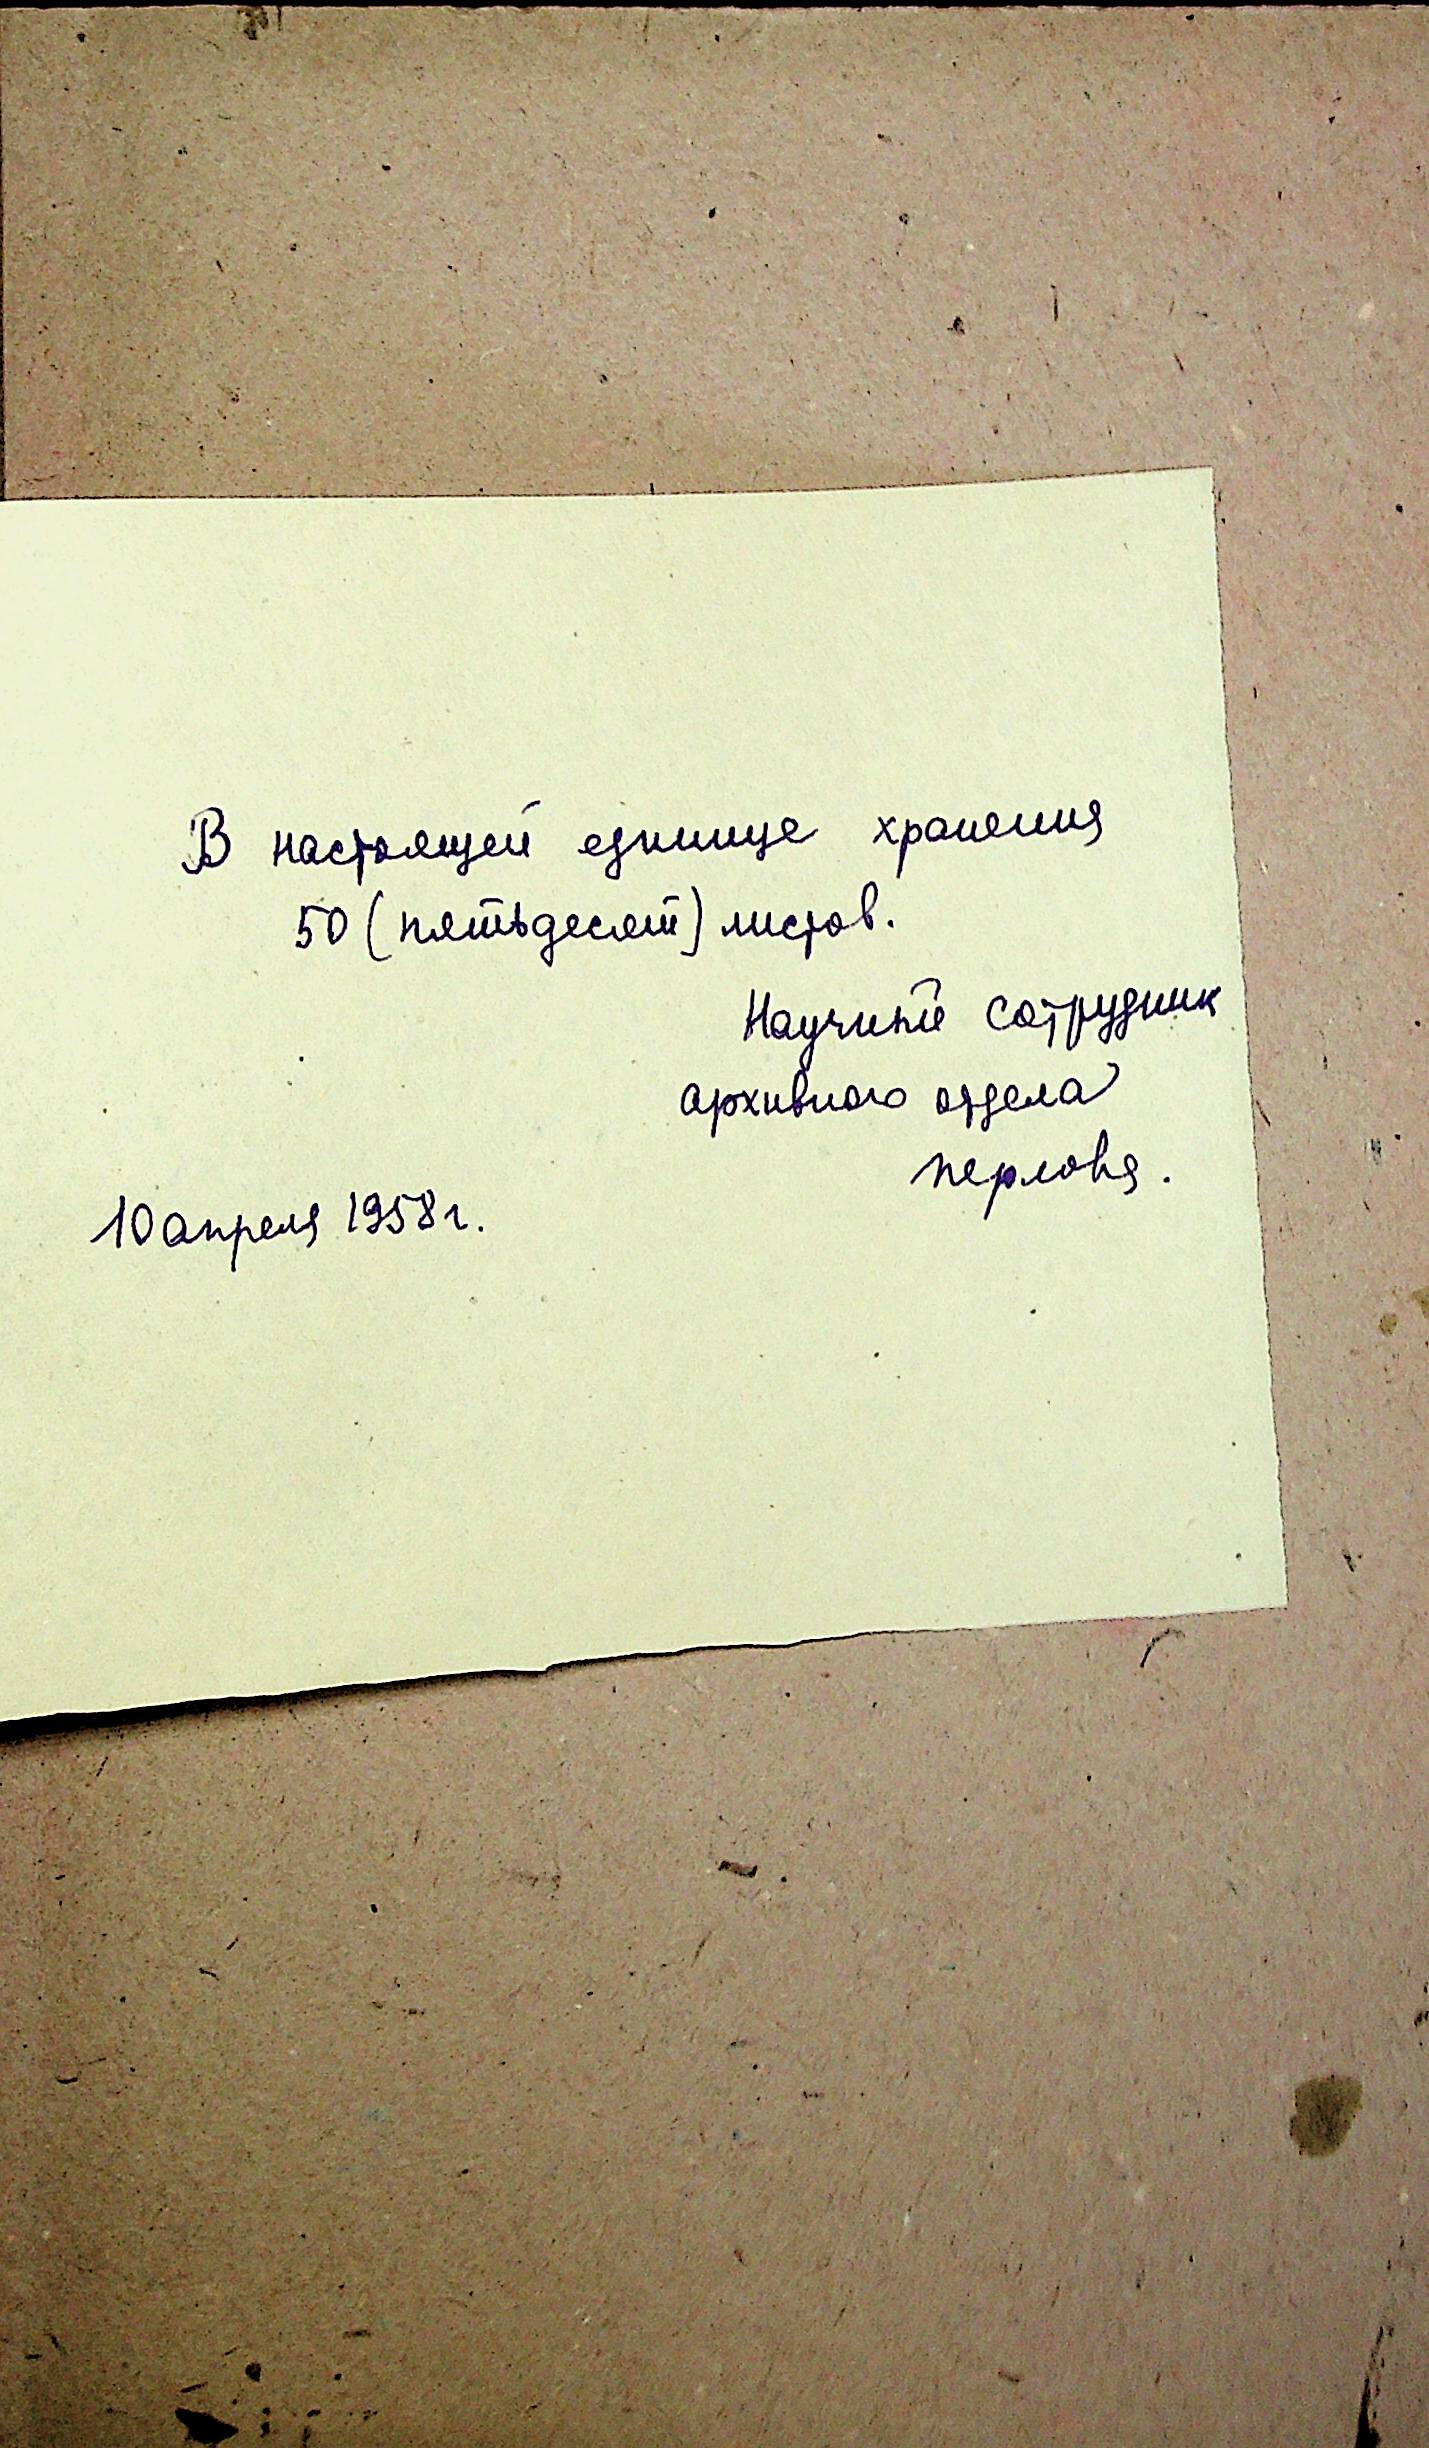 В настоящей единице хранения
50 (пятьдесят) листов.
Научный сотрудник
архивного отдела
Перлова.
10 апреля 1958 г.